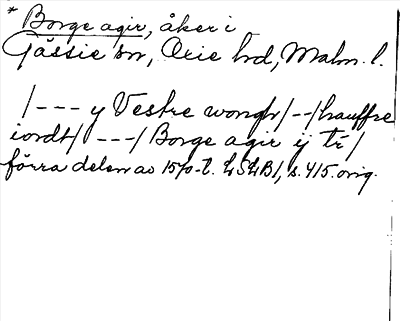 * Borge agir, åker i
Gässie sn, Oxie hd, Malm. l.
/--- y Vestre wongh/--/hauffre
iordt/ ---/ Borge agir ij tr/
förra delen av 1570-t. LSLB1, s. 415. orig.